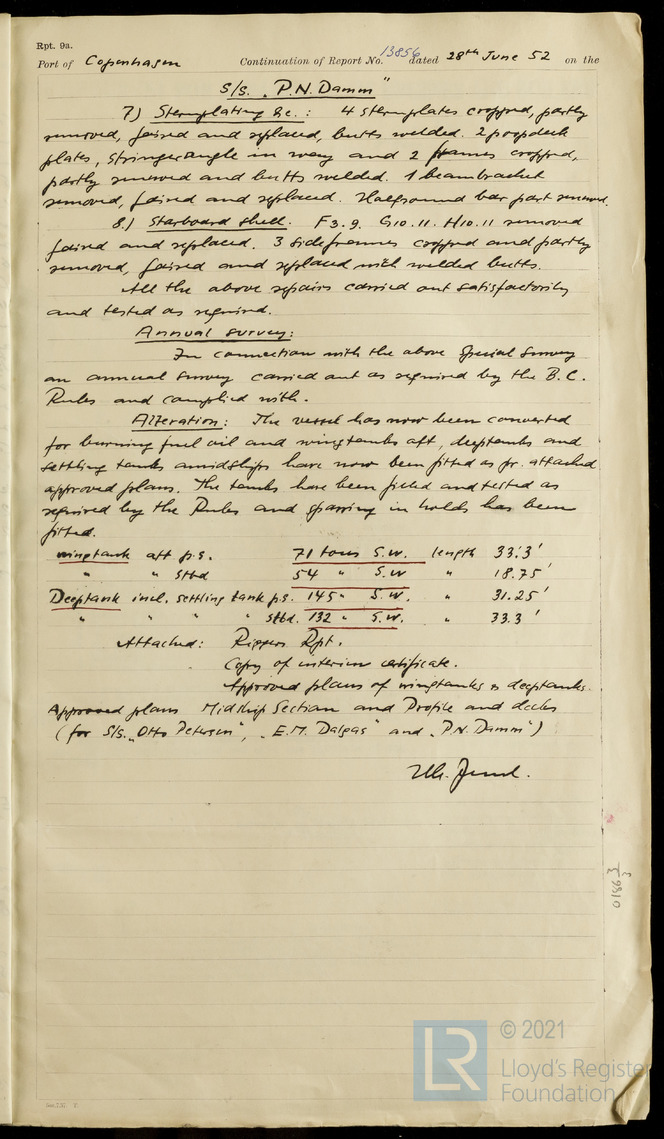 Rpt. 9a.
Port of Copenhagen Continuation of Report No. 13856 dated 28th June 52 on the
S/S. "P.N. Damm"
7) Sternplating &c.: 4 sternplates cropped, partly
removed, faired and replaced, butts welded. 2 poopdeck
plates, stringerangle in way and 2 frames cropped,
partly renewed and butts welded. 1 beambracket
removed, faired and replaced. Halfround bar part renewed.
8.) Starboard shell. F 3. 9. G 10. 11. H 10. 11 removed
faired and replaced. 3 sideframes cropped and partly
removed, faired and replaced with welded butts.
All the above repairs carried out satisfactorily
and tested as required.
Annual survey:
In connection with the above Special Survey
an annual survey carried out as required by the B.C.
Rules and complied with.
Alteration: The vessel has now been converted
for burning fuel oil and wingtanks aft, deeptanks and
settling tanks amidships have now been fitted as pr. attached
approved plans. The tanks have been fitted and tested as
required by the Rules and sparring in holds has been
fitted.
wingtank aft p.s. 71 tons S.W. length 33.3'
" " Stbd 54 " S.W " 18.75'
Deeptank incl. settling tank p.s. 145 " S.W. " 31.25'
" " " " Stbd. 132 " S.W. " 33.3'
Attached: Riggers Rpt.
Copy of interim certificate.
Approved plans of wingtanks & deeptanks.
Approved plans Midship Section and Profile and decks
(for S/S. "Otto Petersen", "E.M. Dalgas" and "P.N. Damm")
01863
3
LR
© 2021
Lloyd's Register
Foundation